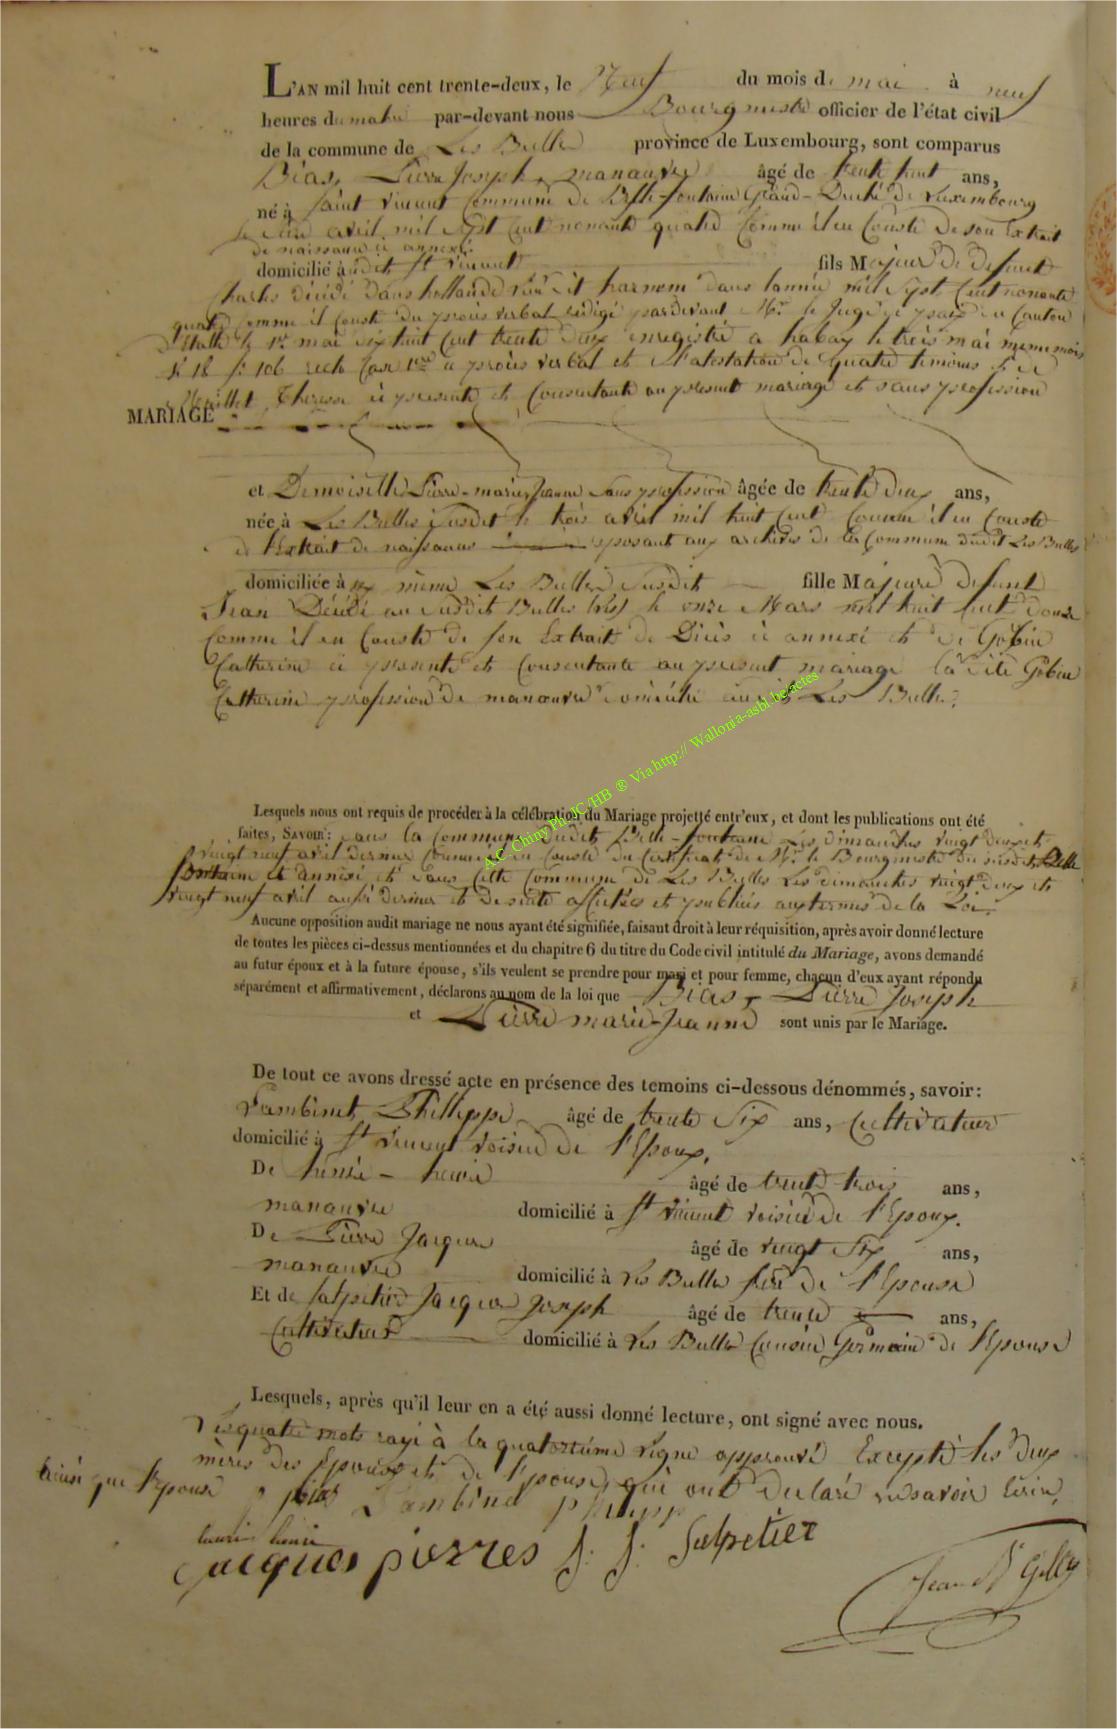 L'AN mil huit cent trente-deux, le Neuf du mois de mai à neuf
heures du matin par-devant nous Bourgmestre officier de l'état civil
de la commune de Les Bulles province de Luxembourg, sont comparus
Bias, Pierre Joseph, manœuvre âgé de trente huit ans,
né à Saint vincent Commune de Belle-fontaine Grand-Duché de Luxembourg
le avril mil sept cent nonante quatre Comme il en Conste de son Extrait
de naissance ci annexé.
domicilié audit St vincent fils Majeur de defunt
Charles décédé dans hollande dans lannée mil sept Cent nonante
quatre Comme il Conste du procès verbal rédigé pardevant Mr. le Juge de paix du Canton
le 1r. mai dix huit Cent trente deux enregistré a habay le trois mai meme mois
N 18 fo 106 recto Case 1re procès verbal et attestation de quatre témoins & de
Theresse ci presente et Consentante au present mariage et sans profession
MARIAGE
et Demoiselle Pierre-marie Jeanne Sans profession âgée de trente deux ans,
née à Les Bulles susdit le trois avril mil huit Cent Comme il en Conste
de l'Extrait de naissance reposant aux archives de la Commune dudit Les Bulles
domiciliée à meme Les Bulles Susdit fille Majeure defunt
Jean Décédé au susdit Bulles le onze Mars mil huit cent douze
Comme il en Conste de son Extrait de Décès ci annexé et de Gobin
Catherine ci presente et Consentante au present mariage la dite Gobin
Catherine profession de manœuvre domiciliée audit Les Bulles
Lesquels nous ont requis de procéder à la célébration du Mariage projetté entr'eux, et dont les publications ont été
faites, Savoir: dans la Commune dudit Belle-fontaine Les dimanches vingt deux et
vingt neuf avril dernier Comme il en Conste du Certificat de Mr. le Bourgmestre du susdit Belle
fontaine et annexé et dans Cette Commune de Les Bulles Les dimanches vingt deux et
vingt neuf avril aussi dernier et de suite affichées et publiées aux termes de la Loi.
Aucune opposition audit mariage ne nous ayant été signifiée, faisant droit à leur réquisition, après avoir donné lecture
de toutes les pièces ci-dessus mentionnées et du chapitre 6 du titre du Code civil intitulé du Mariage, avons demandé
au futur époux et à la future épouse, s'ils veulent se prendre pour mari et pour femme, chacun d'eux ayant répondu
séparément et affirmativement, déclarons au nom de la loi que Bias, Pierre Joseph
et Pierre marie-Jeanne sont unis par le Mariage.
De tout ce avons dressé acte en présence des temoins ci-dessous dénommés, savoir:
Lambinet, Phillippe âgé de trente Six ans, Cultivateur
domicilié à St vincent voisin de l'Epoux.
De henri âgé de trente trois ans,
manœuvre domicilié à St vincent voisin de l'Epoux.
De Pierre Jacques âgé de vingt Six ans,
manœuvre domicilié à Les Bulles frère de l'Epouse
Et de Salpetier Jacques Joseph âgé de trente ans,
Cultivateur domicilié à Les Bulles Cousin Germain de l'Epouse
Lesquels, après qu'il leur en a été aussi donné lecture, ont signé avec nous.
Les quatre mots rayé à la quatorzième ligne approuvé Excepté les deux
mères des Epoux et de l'Epouse, qui ont déclaré ne savoir Ecrire,
ainsi que l'Epouse Lambinet philipp
henri
jacques pierres J: J: Salpetier
Jean Gilly
A.C. Chiny Ph JC/HB ® Via http:// Wallonia-asbl.be/actes